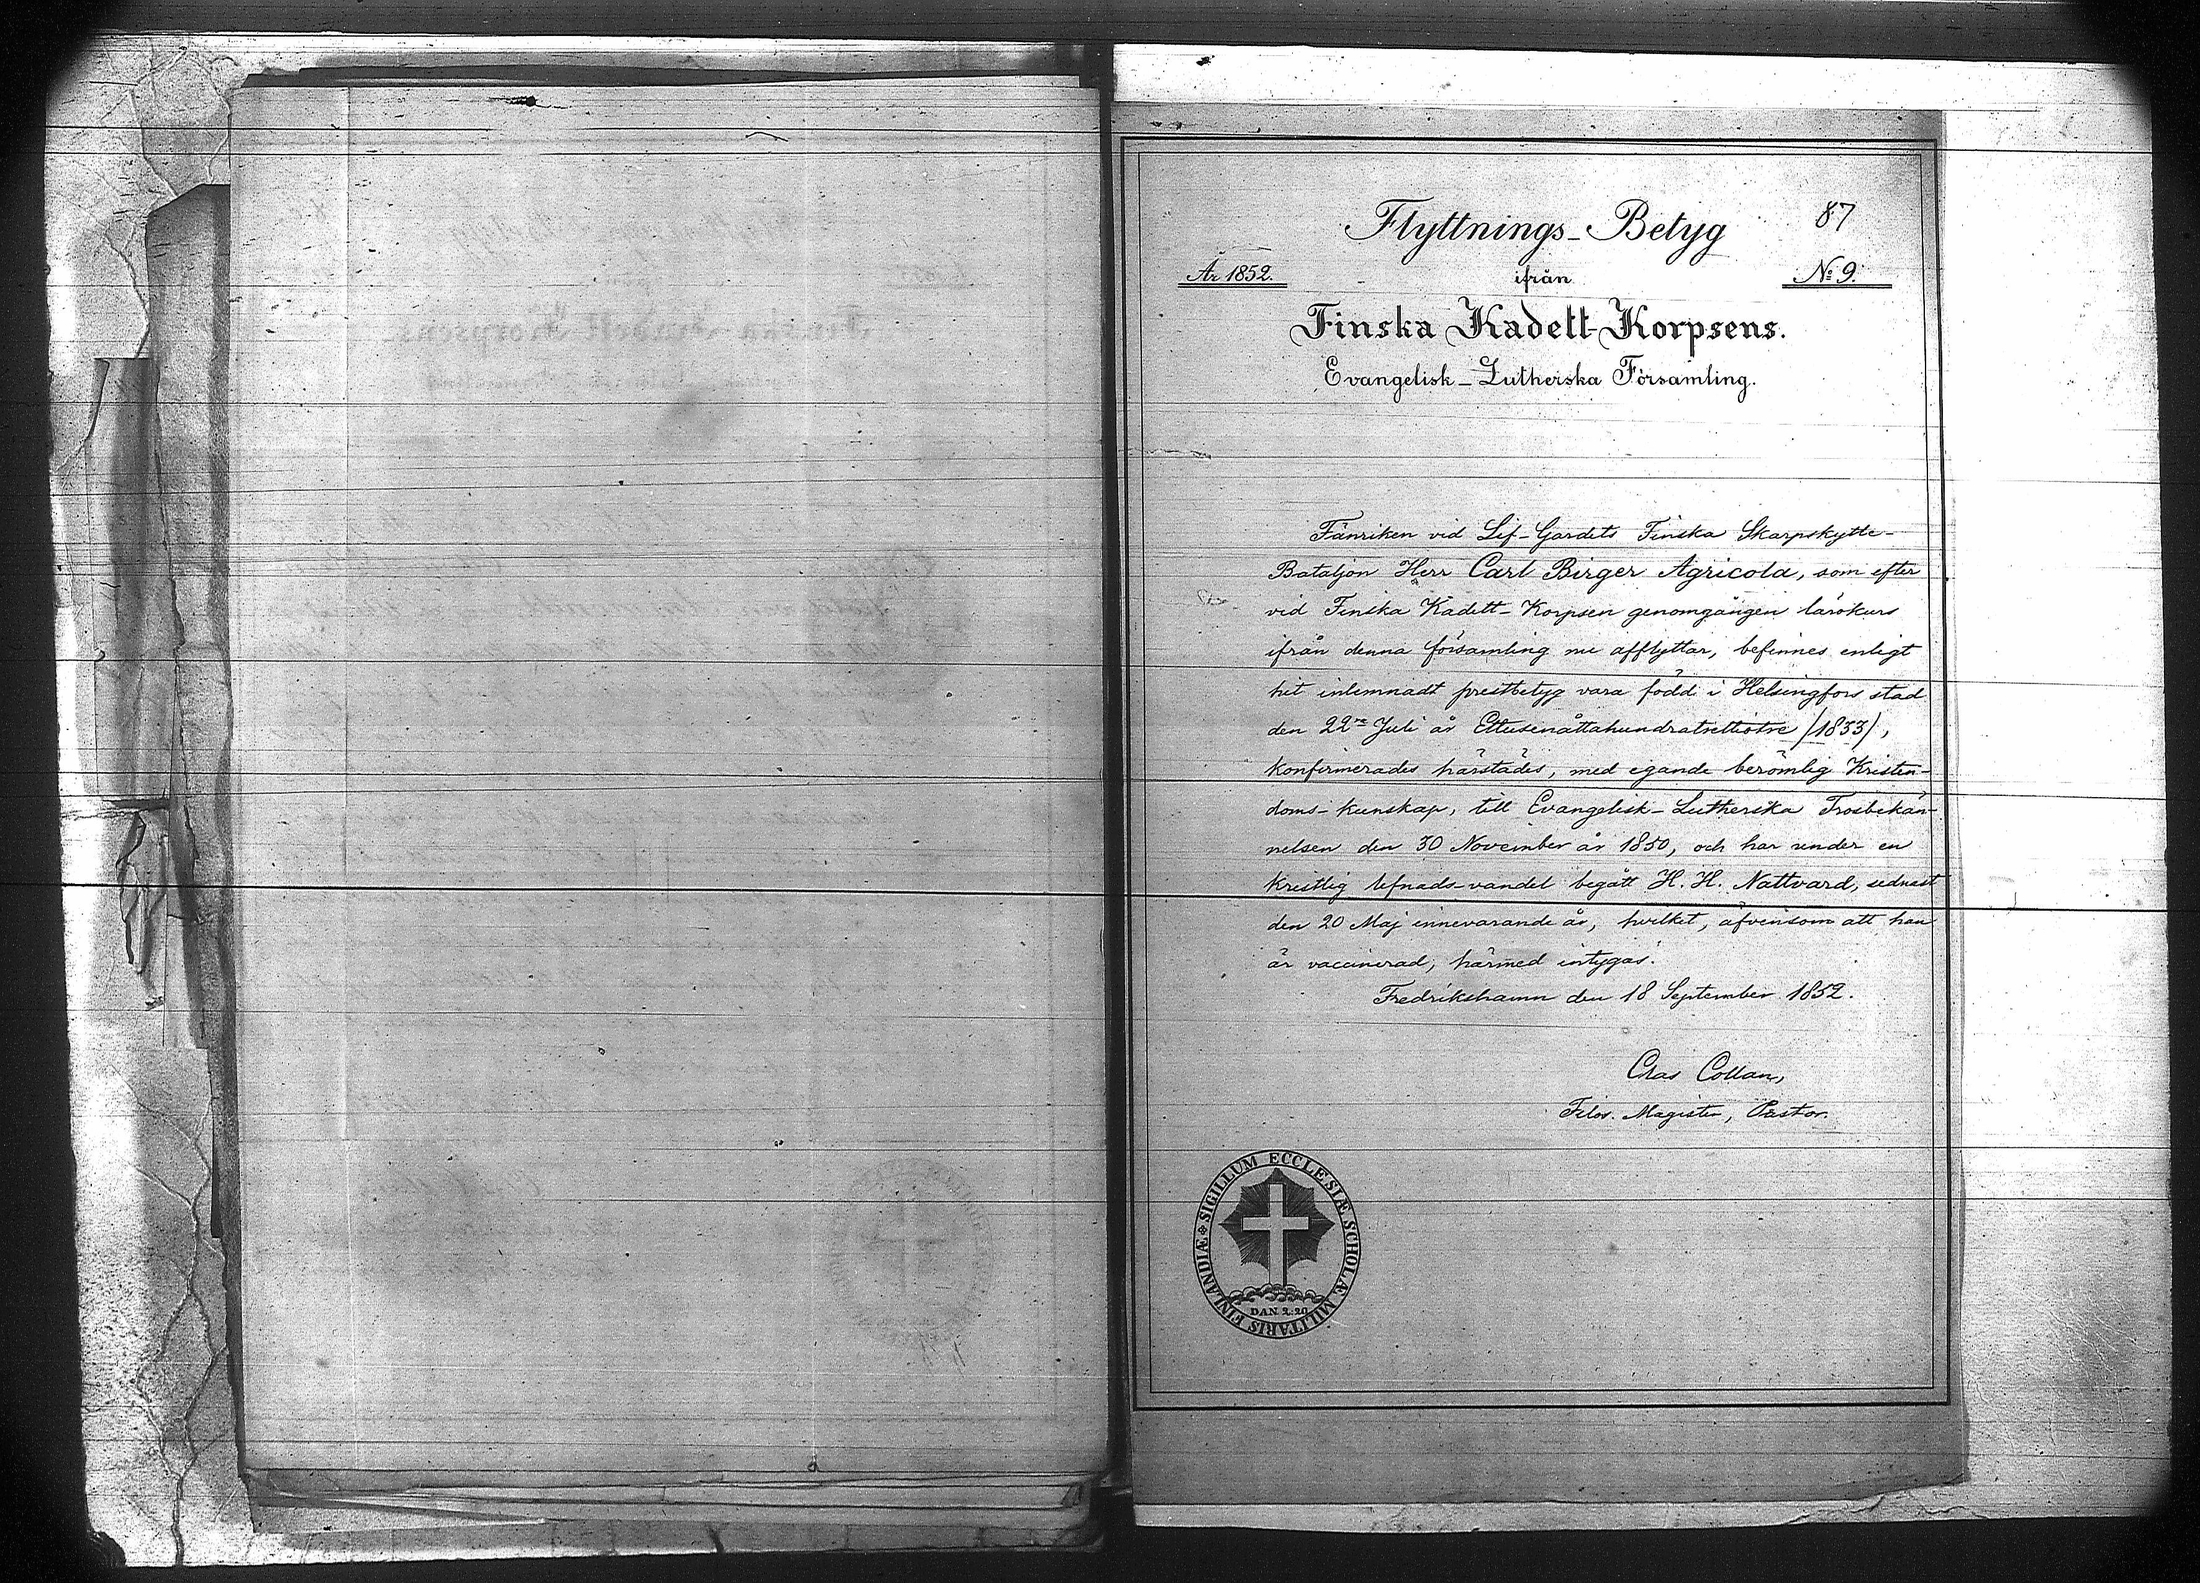 87
Flyttnings-Betyg
År 1852. ifrån № 9.
Finska Kadett-Korpsens.
Evangelisk-Lutherska Församling.
Fänriken vid Lif-Gardets Finska Skarpskytte-
Bataljon Herr Carl Birger Agricola, som efter
vid Finska Kadett-Korpsen genomgången lärokurs
ifrån denna församling nu afflyttar, befinnes enligt
hit inlemnadt prestbetyg vara född i Helsingfors stad
den 22ra Juli år Ettusenåttahundratrettiotre /1833/,
konfirmerades härstädes, med egande berömlig Kristen-
doms-kunskap, till Evangelisk-Lutherska Trosbekän-
nelsen den 30 November år 1850, och har under en
kristlig lefnads-vandel begått H. H. Nattvard, sednast
den 20 Maj innevarande år, hvilket, äfvensom att han
är vaccinerad, härmed intygas.
Fredrikshamn den 18 September 1852.
Clas Collan,
Filos. Magister, Pastor.
SIGILLUM ECCLESIÆ SCHOLÆ MILITARIS FINLANDIÆ
DAN. 2:20